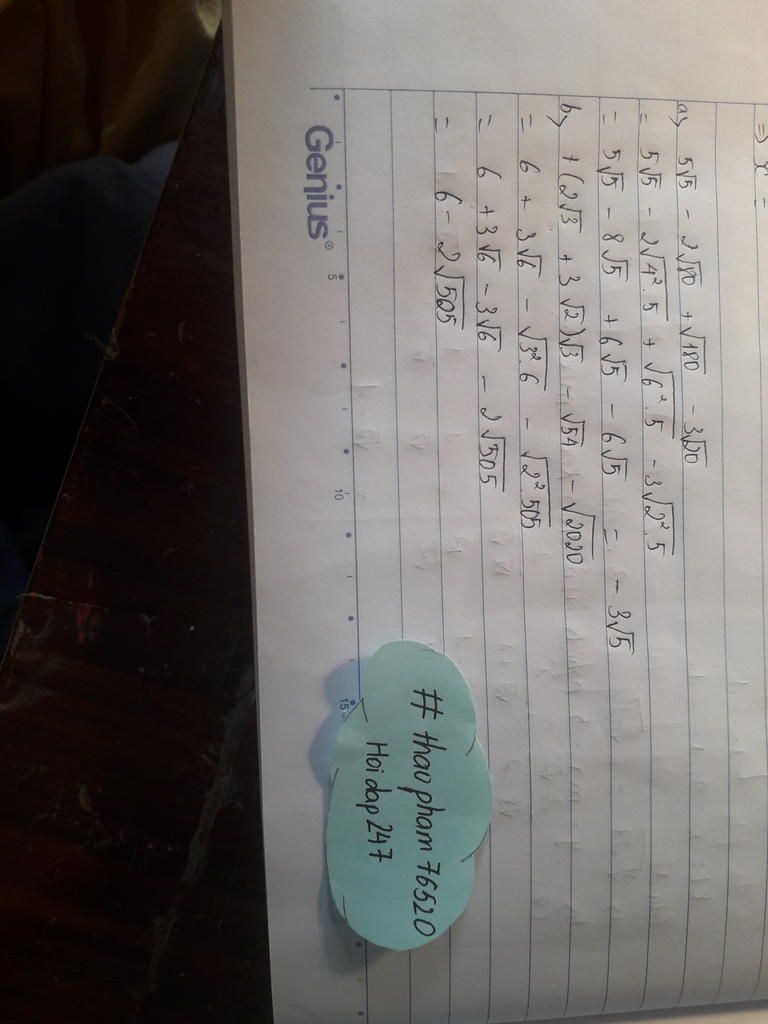 => x =
a> 5√5 - 2√80 + √180 - 3√20
= 5√5 - 2√4².5 + √6².5 - 3√2².5
= 5√5 - 8√5 + 6√5 - 6√5 = - 3√5
b> + (2√3 + 3√2)√3 - √54 - √2020
= 6 + 3√6 - √3².6 - √2².505
= 6 + 3√6 - 3√6 - 2√505
= 6 - 2√505
Genius®
5 10 15
# thaopham76520
Hoidap247